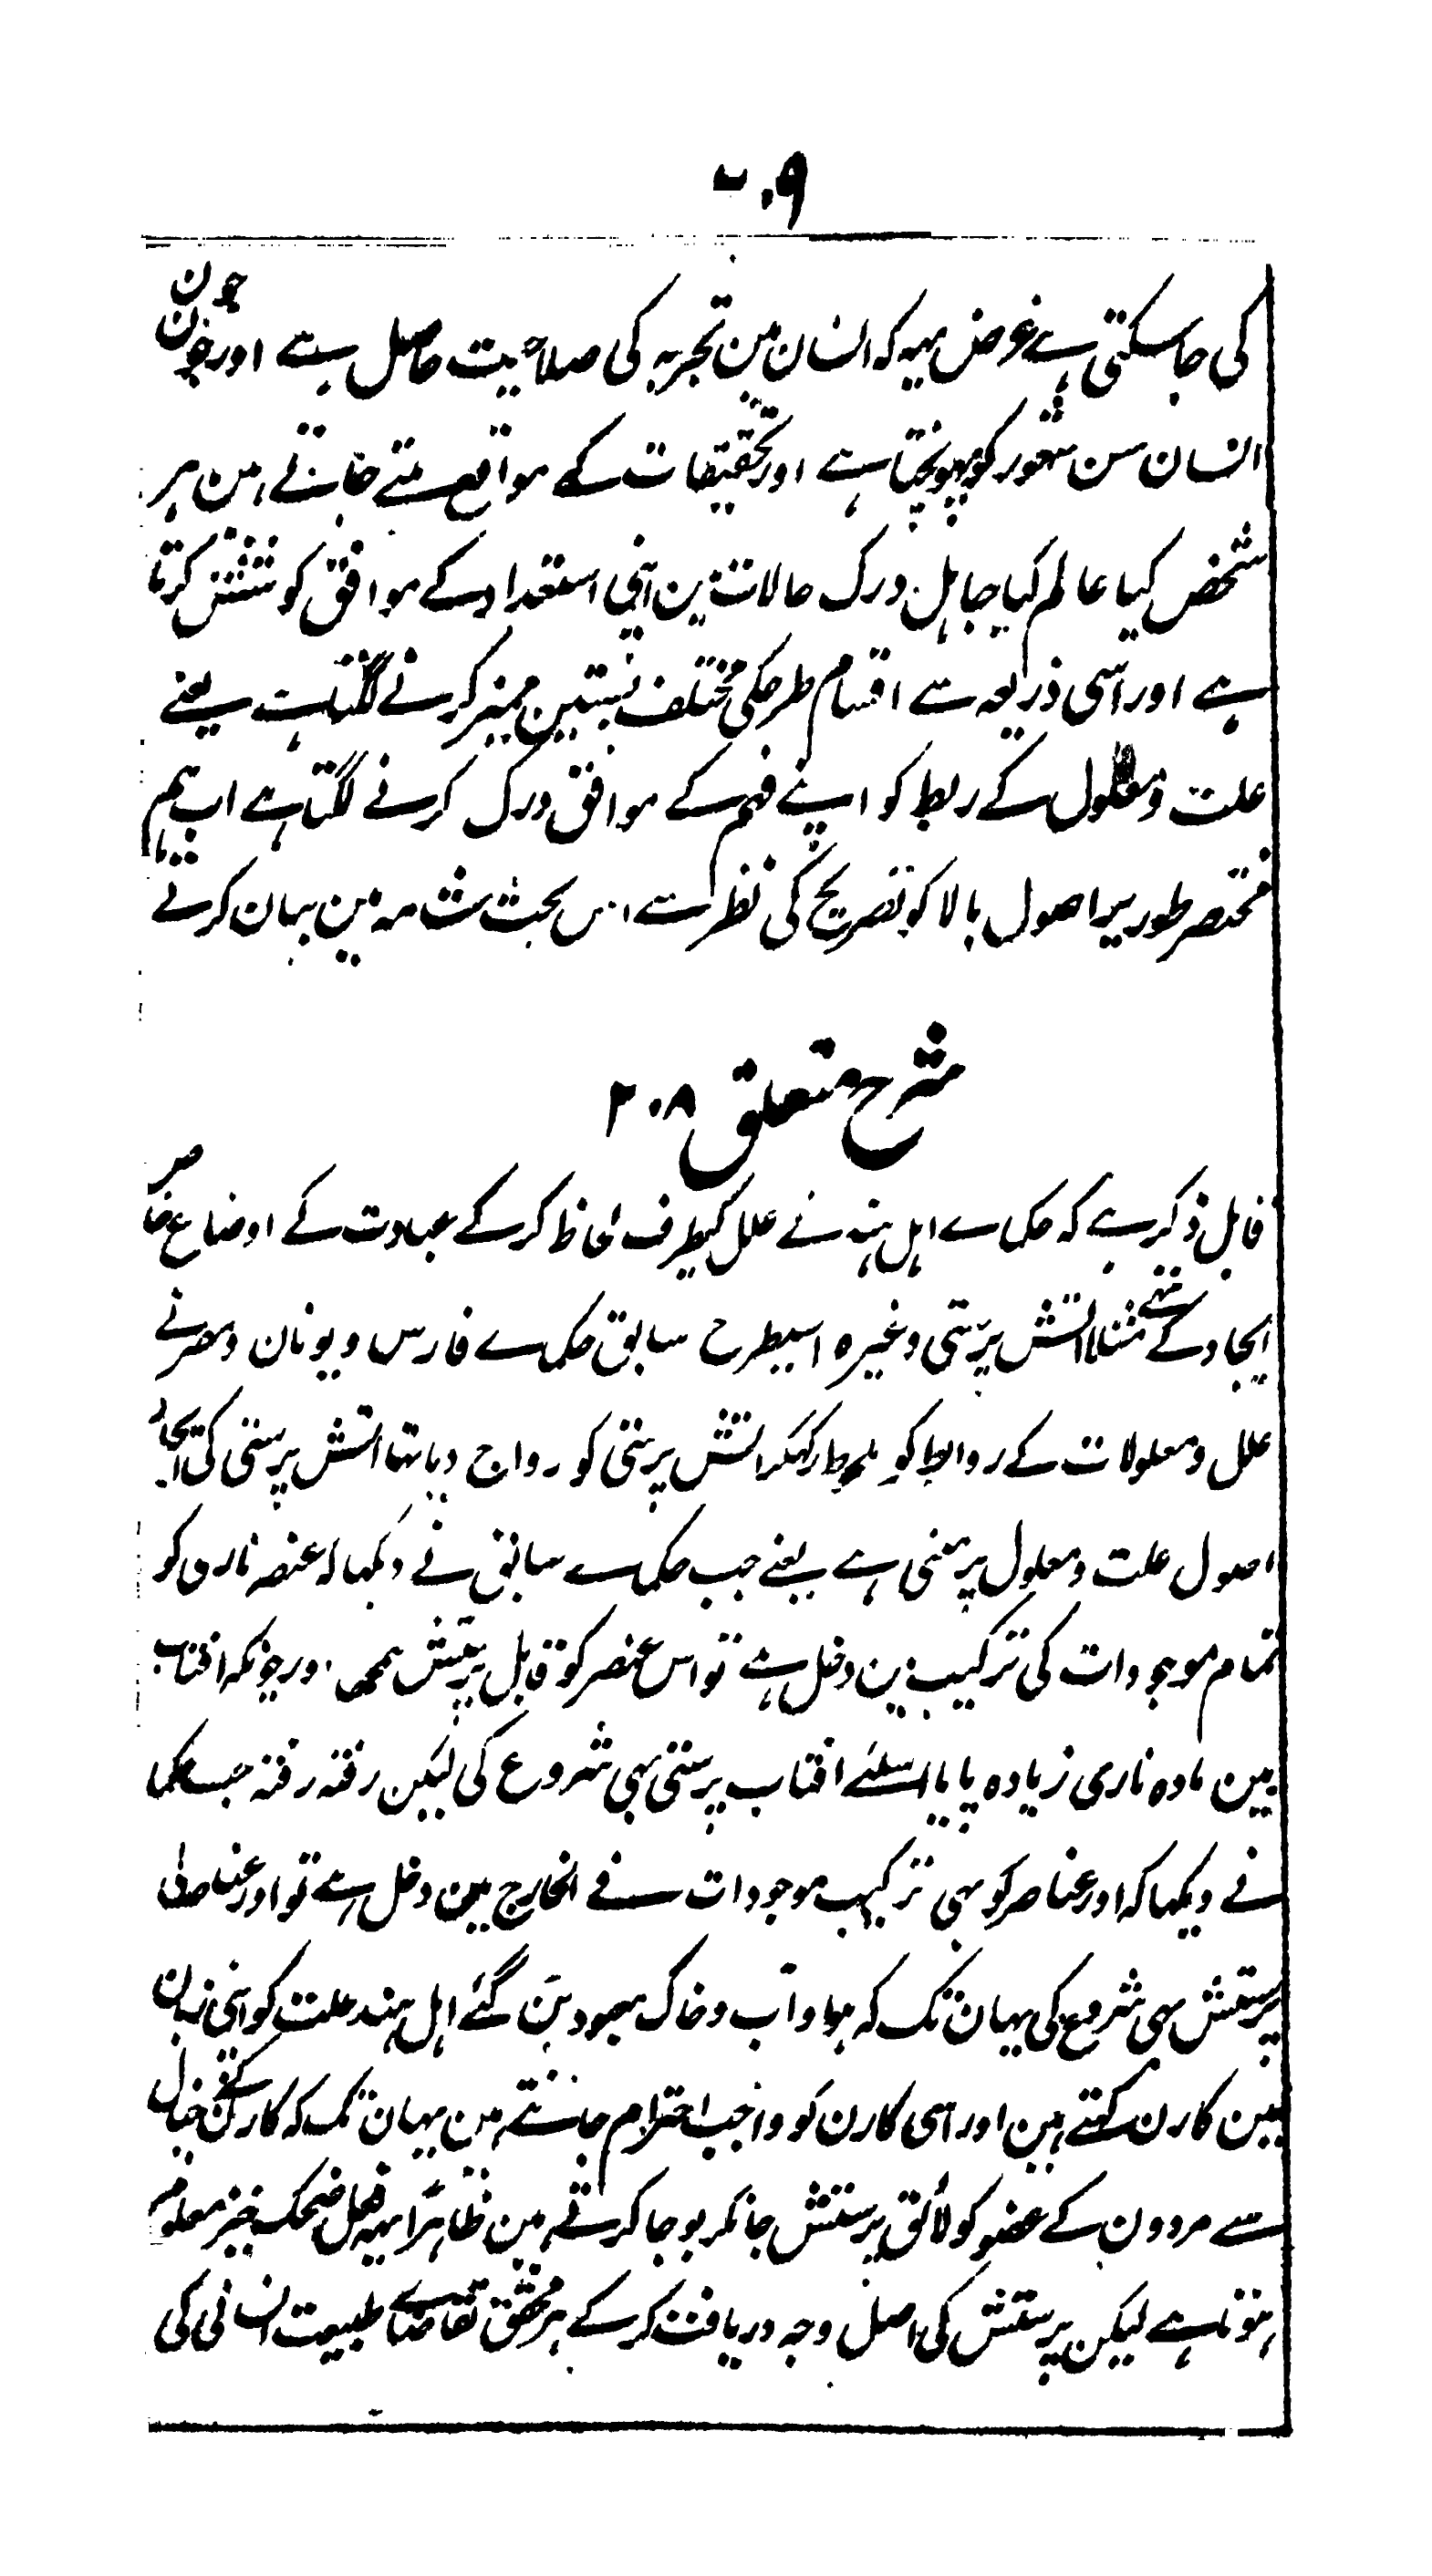 ۲۰۹
کی جاسکتی ہے غرض یہہ کہ انسان مین تجربہ کی صلاحیت حاصل ہے اور جون جون
انسان سن شعور کو پہونچتا ہے اور تحقیقات کے مواقع ملتے جاتے ہین ہر
شخص کیا عالم کیا جاہل درک حالات مین اپنی استعداد کے موافق کوشش کرتا
ہے اور اسی ذریعہ سے اقسام طرحکی مختلف نسبتین ممیز کرنے لگتا ہے یعنے
علت و معلول کے ربط کو اپنے فہم کے موافق درک کرنے لگتا ہے اب ہم
مختصر طور پر اصول بالا کو تصریح کی نظر سے اس بحث شامہ مین بیان کرتے
شرح متعلق ۲۰۸
قابل ذکر ہے کہ حکماے اہل ہند نے علل کیطرف لحاظ کر کے عبادت کے اوضاع خاص
ایجاد کئے تہے مثلا اتش پرستی وغیرہ اسیطرح سابق حکماے فارس و یونان و مصر نے
علل و معلولات کے روابط کو ملحوظ رکھکر اتش پرستی کو رواج دیا تہا اتش پرستی کی ایجاد
اصول علت و معلول پر مبنی ہے یعنے جب حکماے سابق نے دیکہا کہ عنصر ناری کو
تمام موجودات کی ترکیب مین دخل ہے تو اس عنصر کو قابل پرستش سمجھی اور چونکہ افتاب
مین مادہ ناری زیادہ پایا اسلئے افتاب پرستی بہی شروع کی لیکن رفتہ رفتہ جب حکما
نے دیکہا کہ اور عناصر کو بہی ترکیب موجودات فے الخارج مین دخل ہے تو اور عناصر کی
پرستش بہی شروع کی یہان تک کہ ہوا و آب و خاک معبود بن گئے اہل ہند علت کو اپنی زبان
مین کارن کہتے ہین اور اسی کارن کو واجب احترام جانتے ہین یہان تک کہ کارن کے خیال
سے مردون کے عضو کو لائق پرستش جانکر پوجا کرتے ہین ظاہرًا یہہ فعل ضحک خیز معلوم
ہوتا ہے لیکن پرستش کی اصل وجہ دریافت کر کے ہر محقق تقاضاے طبیعت انسانی کی